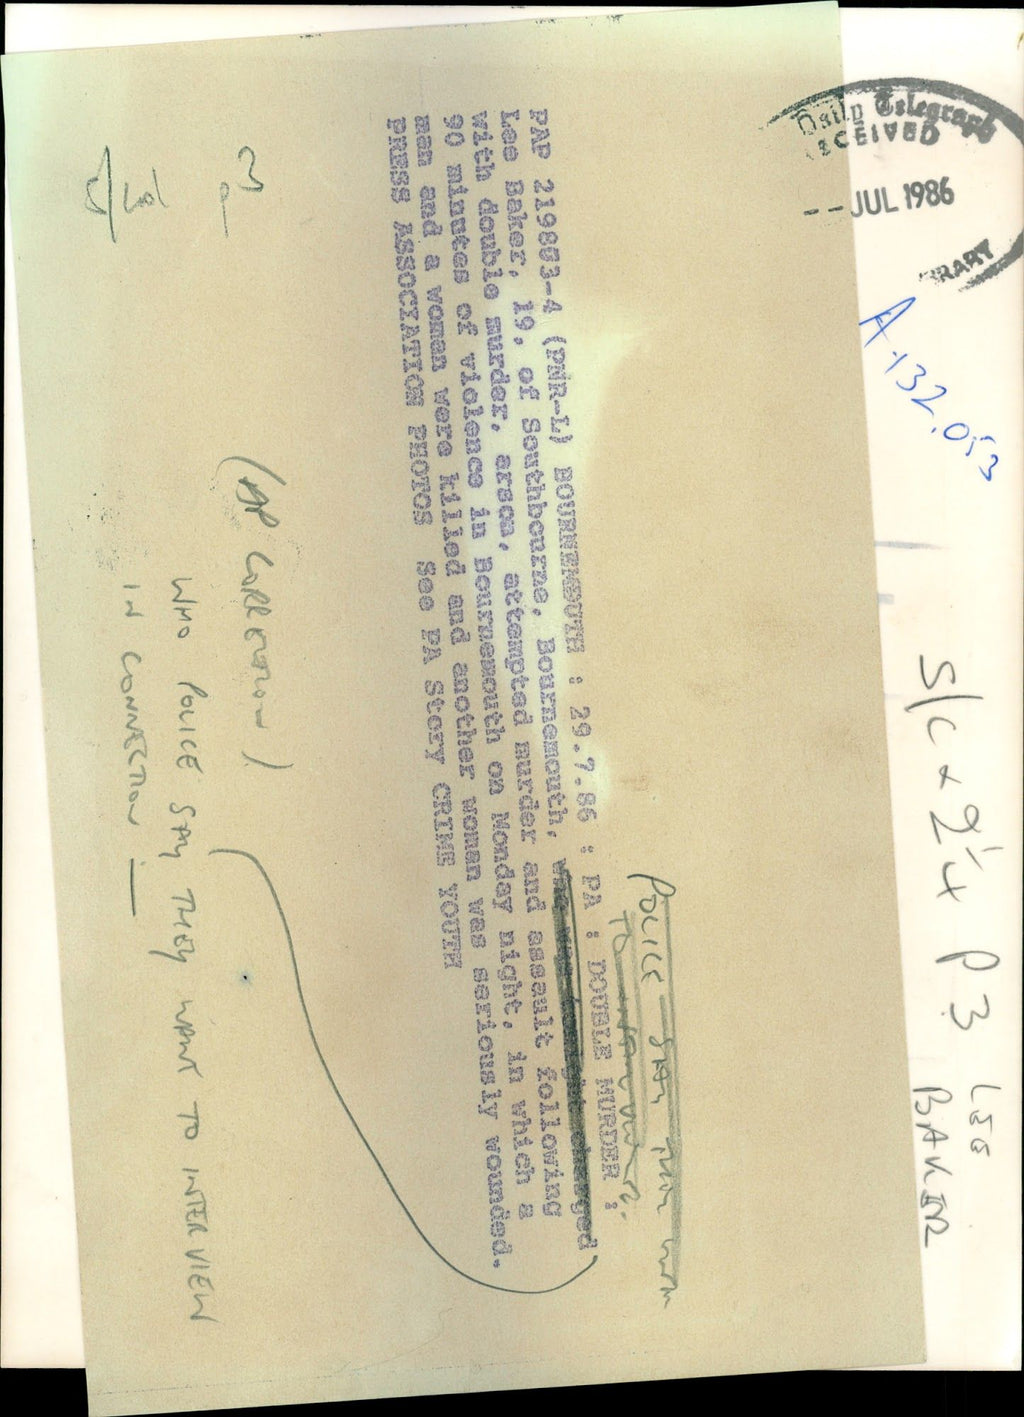 Daily Telegraph
RECEIVED
-- JUL 1986
LIBRARY
A-132,053
S/C x 2¼ P 3
LEE
BAKER
POLICE SAY THEY WANT
TO INTERVIEW
PAP 219883-4 (PWR-L) BOURNEMOUTH : 29.7.86 : PA : DOUBLE MURDER :
Lee Baker, 19, of Southbourne, Bournemouth, charged
with double murder, arson, attempted murder and assault following
90 minutes of violence in Bournemouth on Monday night, in which a
man and a woman were killed and another woman was seriously wounded.
PRESS ASSOCIATION PHOTOS See PA Story CRIME YOUTH
(AP CORRECTION)
WHO POLICE SAY THEY WANT TO INTERVIEW
IN CONNECTION —
p3